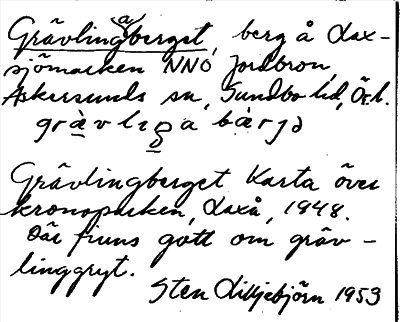 Grävlingaberget, berg å Lax-
sjömarken NNO Jordbron,
Askersunds sn, Sundbo hd, Ör l.
grä̀vlıga bàrjə
Grävlingberget Karta över
kronoparken, Laxå, 1948.
Där finns gott om gräv-
linggryt.
Sten Lilljebjörn 1953